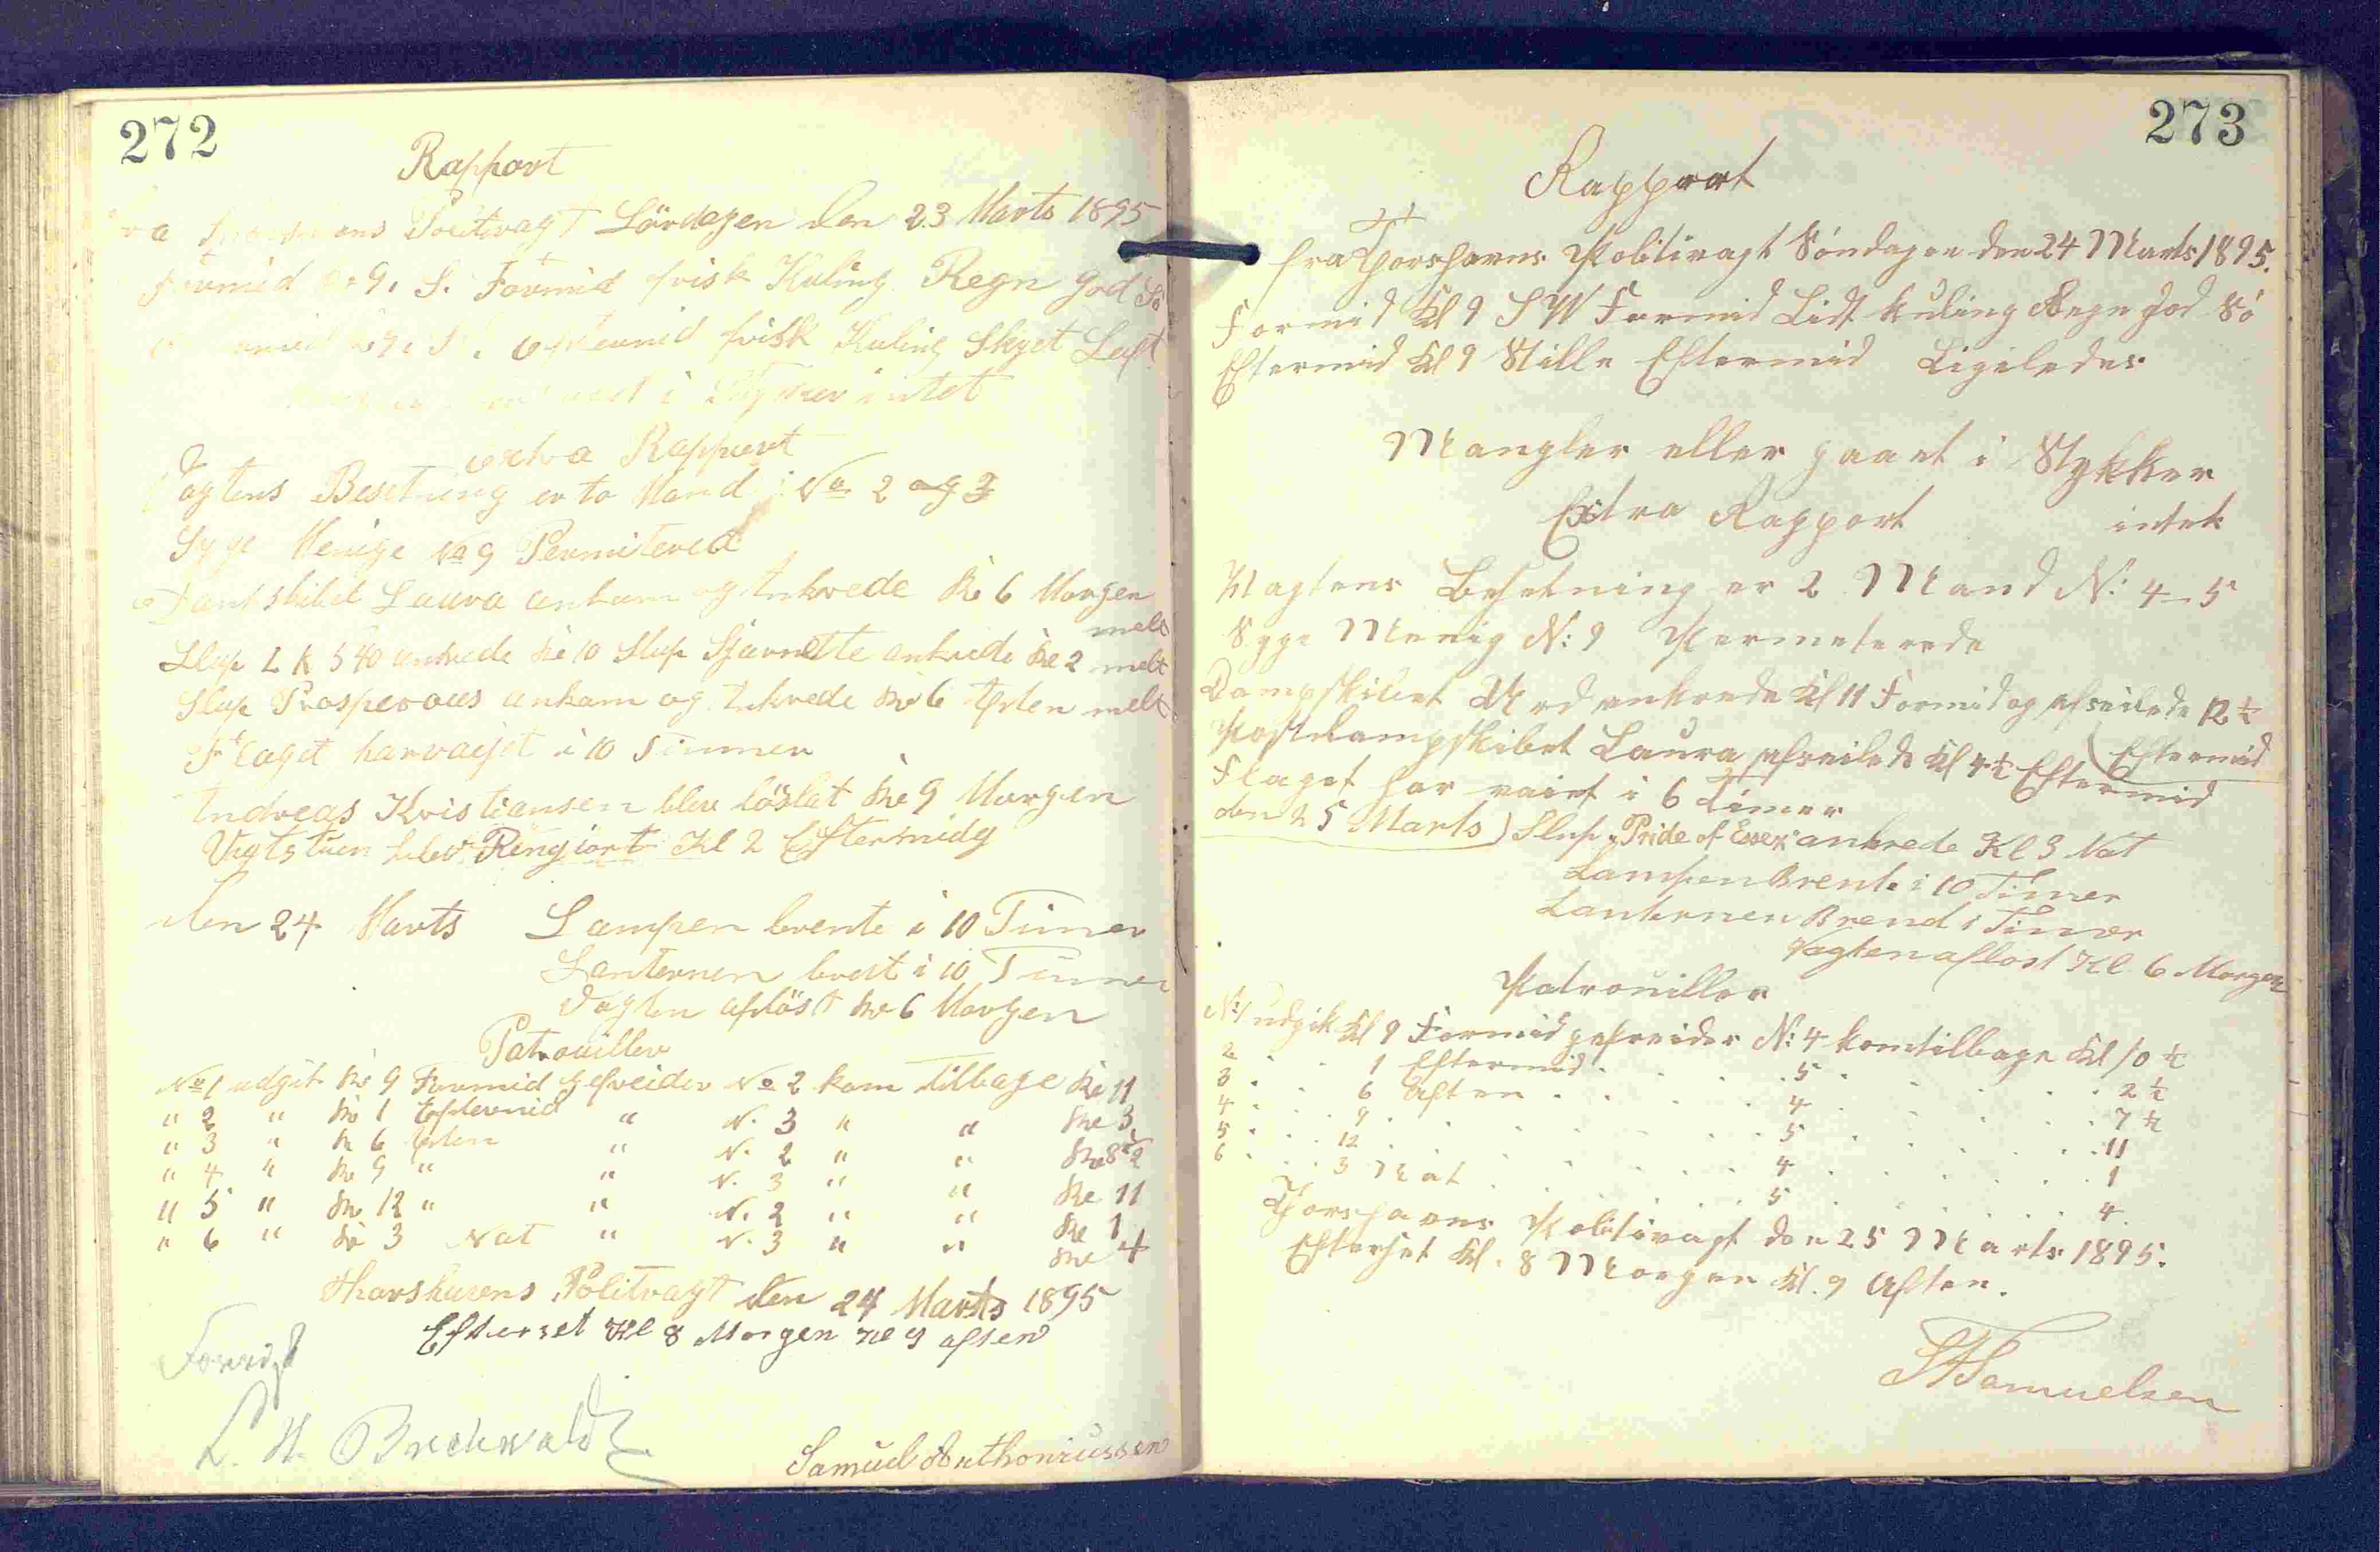 272
Rapport
Politvagt Lördagen den 23 Marts 1895
Formid 9. S. Formid frisk Kuling Regn god Sö
frisk Kuling Skyet Luft
i intet
extra Rapport
Vagtens Besetning er to Mand No 2 og 3
Syge Menige No 9 Permitered
Laura ankam og Ankrede Kl 6 Morgen
Slup L K 540 ankrede Kl 10 Slup Sjavnette ankrede Kl 2 melt
meld
Slup Prosperous ankam og Ankrede Kl 6 Aften melt
Flaget har vaijet i 10 Timmer
Andreas Kristiansen blev löslat Kl 9 Morgen
Vagtstuen blev Rengiort Kl 2 Eftermidg
den 24 Marts Lampen brente i 10 Timer
Lanternen brent i 10 Timer
Vagten aflöst Kl 6 Morgen
Patrouiller
No 1 udgik Kl 9 Formid gefreider No 2 kam tilbage Kl 11
" 2 " Kl 1 Eftermid " N. 3 " " Kl 3
" 3 " Kl 6 Aften " N. 2 " " Kl 8 1/2
" 4 " Kl 9 " " N. 3 " " Kl 11
" 5 " Kl 12 " " N. 2 " " Kl 1
" 6 " Kl 3 Nat " N. 3 " " Kl 4
Thorshavens Politvagt den 24 Marts 1895
Efterset Kl 8 Morgen Kl 9 aften
Samuel Anthoniussen
273
Rapport
fra Thorshavns Politivagt Söndagen den 24 Marts 1895.
Formid Kl 9 SW Formid Lidt kuling Regn god Sö
Eftermid Kl 9 Stille Eftermid Ligeledes
Mangler eller gaaet i Stykker
intet
Extra Rapport
Vagtens Besetning er 2 Mand N: 4-5
Syge Menig N: 9 Permeterede
Dampskibet ankrede Kl 11 Formid og afseilede 12 1/2
Eftermid
Postdampskibet Laura afseilede Kl 4 1/2 Eftermid
Flaget har vaiet i 6 Timer
den 25 Marts) Slup "Pride of Essex" ankrede Kl 3 Nat
Lampen Brent i 10 Timer
Lanternen Brend i Timer
Vagten aflöst Kl 6 Morgen
Patrouiller
N: 1 udgik Kl 9 Formid gefreider N: 4 kom tilbage Kl 10 1/2
2 . . 1 Eftermid . . 5 . . 2 1/2
3 . . 6 Aften . . 4 . . 7 1/2
4 . . 9 . . 5 . . 11
5 . . 12 . . 4 . . 1
6 . . 3 Nat . . 5 . . 4
Thorshavns Politivagt den 25 Marts 1895.
Efterset Kl. 8 Morgen Kl. 9 Aften.
Samuelsen